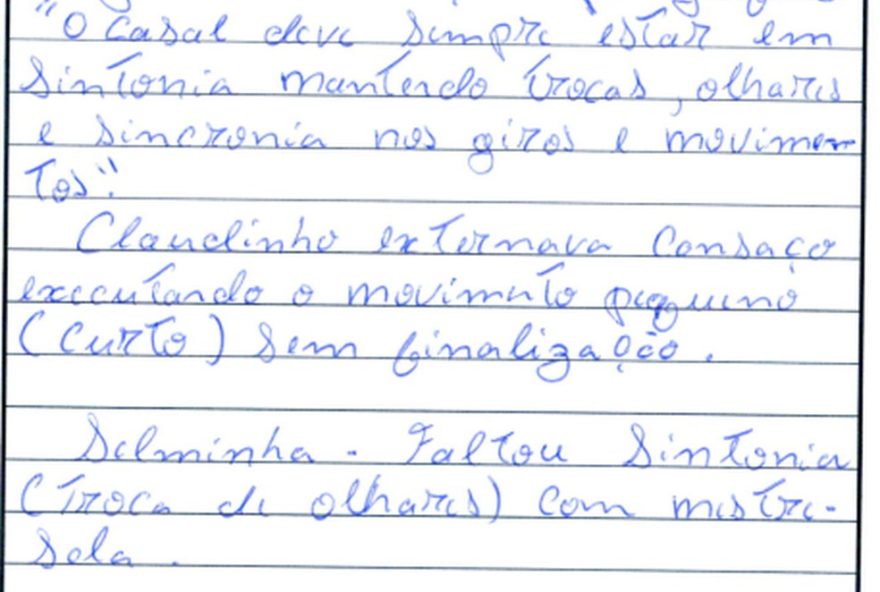 "O Casal deve sempre estar em
sintonia mantendo trocas, olhares
e sincronia nos giros e movimen
tos".
Claudinho externava Cansaço
executando o movimento pequeno
(curto) sem finalização.
Selminha - Faltou Sintonia
(Troca de olhares) com mestre-
sala.